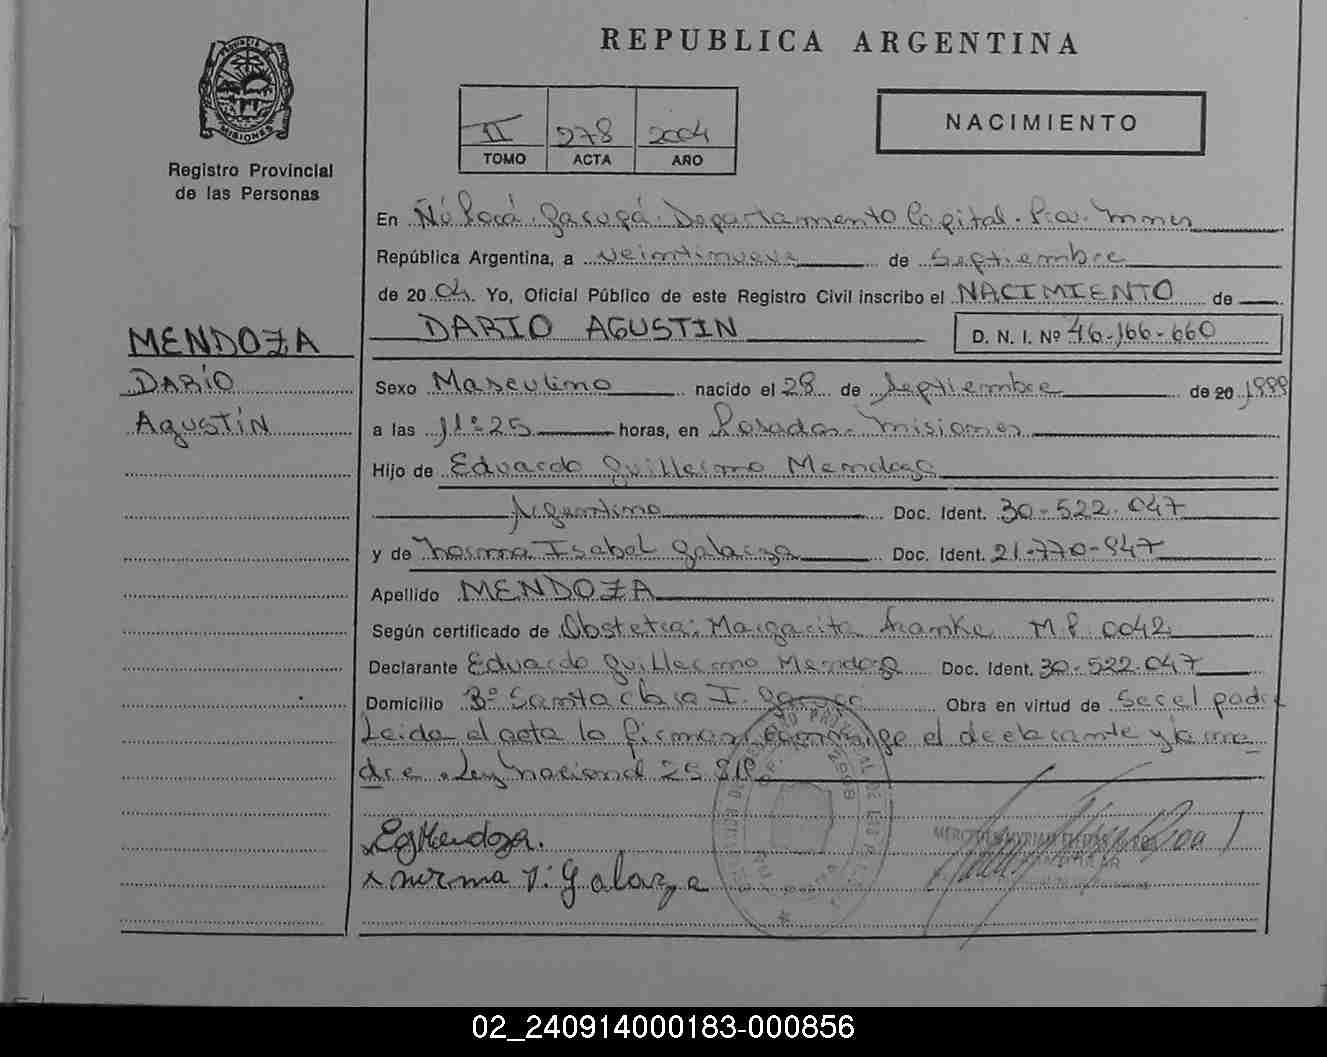 REPUBLICA ARGENTINA
MISIONES
Registro Provincial
de las Personas
II 278 2004
TOMO ACTA AÑO
NACIMIENTO
En Ñú Porá. Garupá. Departamento Capital. Misiones
República Argentina, a veintinueve de Septiembre
de 2004. Yo, Oficial Público de este Registro Civil inscribo el NACIMIENTO de
DARIO AGUSTIN D. N. I. Nº 46-166-660
MENDOZA
DARÍO
AGUSTÍN
Sexo Masculino nacido el 28 de Septiembre de 20 1999
a las 11:25 horas, en Posadas-Misiones
Hijo de Eduardo Guillermo Mendoza
Argentino Doc. Ident. 30-522.047
y de Norma Isabel Galarza Doc. Ident. 21-770-847
Apellido MENDOZA
Según certificado de Obstetra: Margarita Franke M.P. 0042
Declarante Eduardo Guillermo Mendoza Doc. Ident. 30-522.047
Domicilio Bº Santa Clara I. Obra en virtud de Ser el padre
Leida el acta la firman conmigo el declarante y la ma
dre. Ley Nacional 25.819
EgMendoza.
x Norma I. Galarza
02_240914000183-000856